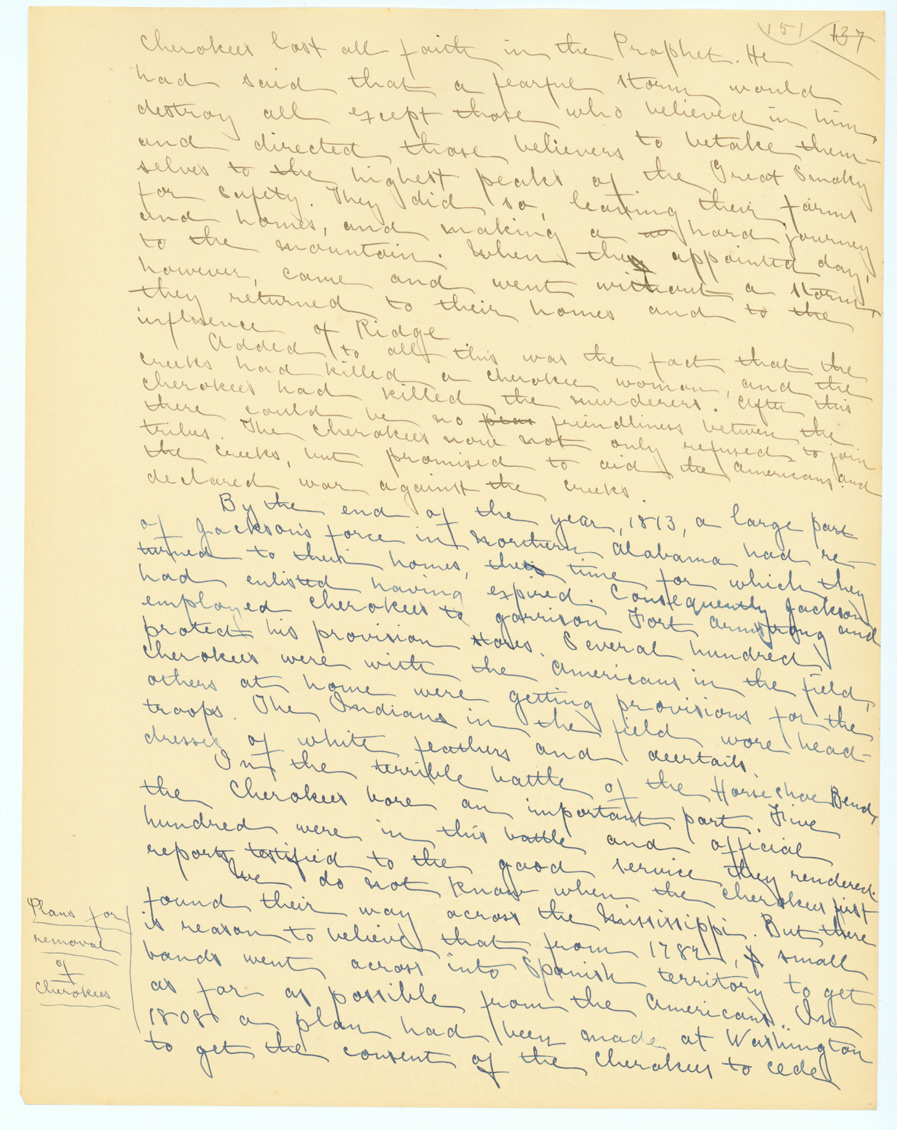 151 137
Cherokees lost all faith in the Prophet. He
had said that a fearful storm would
destroy all except those who believed in him,
and directed those believers to betake them-
selves to the highest peaks of the Great Smoky
for safety. They did so, leaving their farms
and homes, and making a hard journey
to the mountain. When the appointed day,
however, came and went without a storm,
they returned to their homes and to the
influence of Ridge
Added to all this was the fact that the
Creeks had killed a Cherokee woman, and the
Cherokees had killed the murderers. After this
there could be no friendliness between the
tribes. The Cherokees now not only refused to join
the Creeks, but promised to aid the Americans and
declared war against the Creeks.
By the end of the year, 1813, a large part
of Jackson's force in Northern Alabama had re-
turned to their homes, their time for which they
had enlisted having expired. Consequently Jackson
employed Cherokees to garrison Fort Armstrong and
protect his provision stores. Several hundred
Cherokees were with the Americans in the field,
others at home were getting provisions for the
troops. The Indians in the field wore head-
dresses of white feathers and deertails.
In the terrible battle of the Horseshoe Bend,
the Cherokees bore an important part. Five
hundred were in this battle and official
reports testified to the good service they rendered.
We do not know when the Cherokees first
found their way across the Mississippi. But there
is reason to believe that from 1782, small
bands went across into Spanish territory to get
as far as possible from the Americans. In
1808 a plan had been made at Washington
to get the consent of the Cherokees to cede
Plans for
removal
of
Cherokees